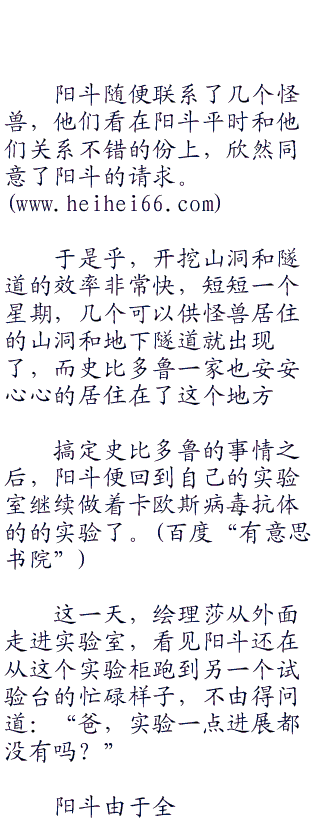 阳斗随便联系了几个怪
兽，他们看在阳斗平时和他
们关系不错的份上，欣然同
意了阳斗的请求。
(www.heihei66.com)
于是乎，开挖山洞和隧
道的效率非常快，短短一个
星期，几个可以供怪兽居住
的山洞和地下隧道就出现
了，而史比多鲁一家也安安
心心的居住在了这个地方
搞定史比多鲁的事情之
后，阳斗便回到自己的实验
室继续做着卡欧斯病毒抗体
的的实验了。(百度“有意思
书院”)
这一天，绘理莎从外面
走进实验室，看见阳斗还在
从这个实验柜跑到另一个试
验台的忙碌样子，不由得问
道：“爸，实验一点进展都
没有吗？”
阳斗由于全